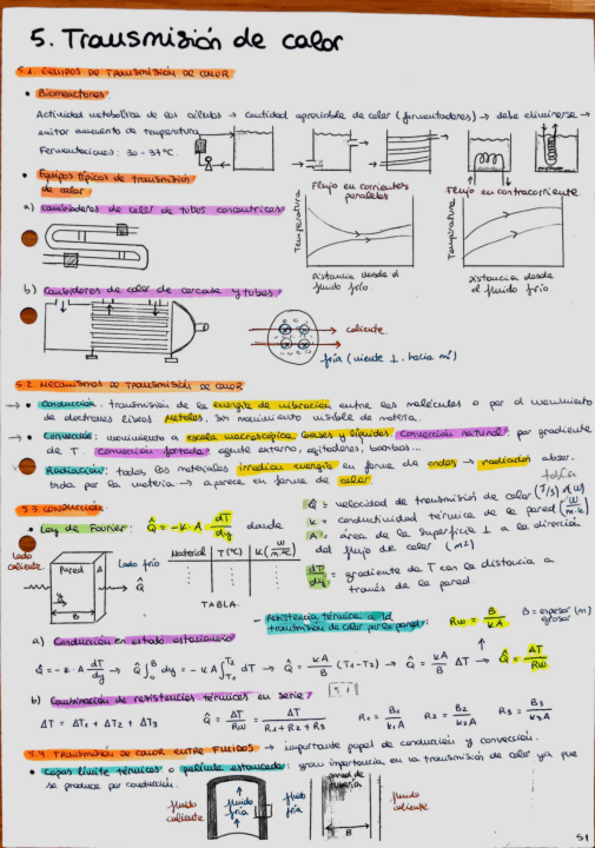 5. Transmisión de calor
5.1. EQUIPOS DE TRANSMISIÓN DE CALOR.
• Biorreactores:
Actividad metabólica de las células → cantidad apreciable de calor (fermentadores) → debe eliminarse →
evitar aumento de temperatura
Fermentaciones: 30-37°C.
• Equipos típicos de transmisión
de calor
Flujo en corrientes
paralelas
Flujo en contracorriente
a) Cambiadores de calor de tubos concéntricos
Temperatura
Temperatura
Distancia desde el
fluido frío.
Distancia desde
el fluido frío.
b) Cambiadores de calor de carcasa y tubos
caliente
fría (viente ⊥, hacia mí)
5.2 MECANISMOS DE TRANSMISIÓN DE CALOR
→ • Conducción: transmisión de la energía de vibración entre las moléculas o por el movimiento
de electrones libres. Metales, sin movimiento visible de materia.
→ • Convección: movimiento a escala macroscópica. Gases y líquidos. Convección natural: por gradiente
de T. Convección forzada: agente externo, agitadores, bombas...
• Radiación: todos los materiales irradian energía en forma de ondas → radiación absor-
bida por la materia → aparece en forma de calor.
5.3 CONDUCCIÓN
• Ley de Fourier: Q̂ = -K · A · dT/dy donde
Q̂ = velocidad de transmisión de calor (J/s) ó W)
K = conductividad térmica de la pared (W/m·K)
A = área de la superficie ⊥ a la dirección
del flujo de calor (m²)
dT/dy = gradiente de T con la distancia a
través de la pared
Lado
caliente
Pared
A
Lado frío
Q̂
B
Material T(°C) K(W/m·K)
TABLA.
- Resistencia térmica a la
transmisión de calor por la pared: Rw = B/kA
B = espesor (m)
grosor
a) Conducción en estado estacionario
Q̂ = -K·A dT/dy → Q̂ ∫₀ᴮ dy = -KA ∫T₁T₂ dT → Q̂ = KA/B (T1-T2) → Q̂ = KA/B ΔT → Q̂ = ΔT/Rw
b) Combinación de resistencias térmicas en serie
ΔT = ΔT1 + ΔT2 + ΔT3 Q̂ = ΔT/Rw = ΔT/(R1+R2+R3) R1 = B1/k1A R2 = B2/k2A R3 = B3/k3A
5.4 TRANSMISIÓN DE CALOR ENTRE FLUIDOS → importante papel de conducción y convección.
• Capas límite térmicas o película estancada: gran importancia en la transmisión de calor ya que
se produce por conducción.
fluido
caliente
fluido
fría
fluido
fría
pared de
tubería
B
fluido
caliente
51